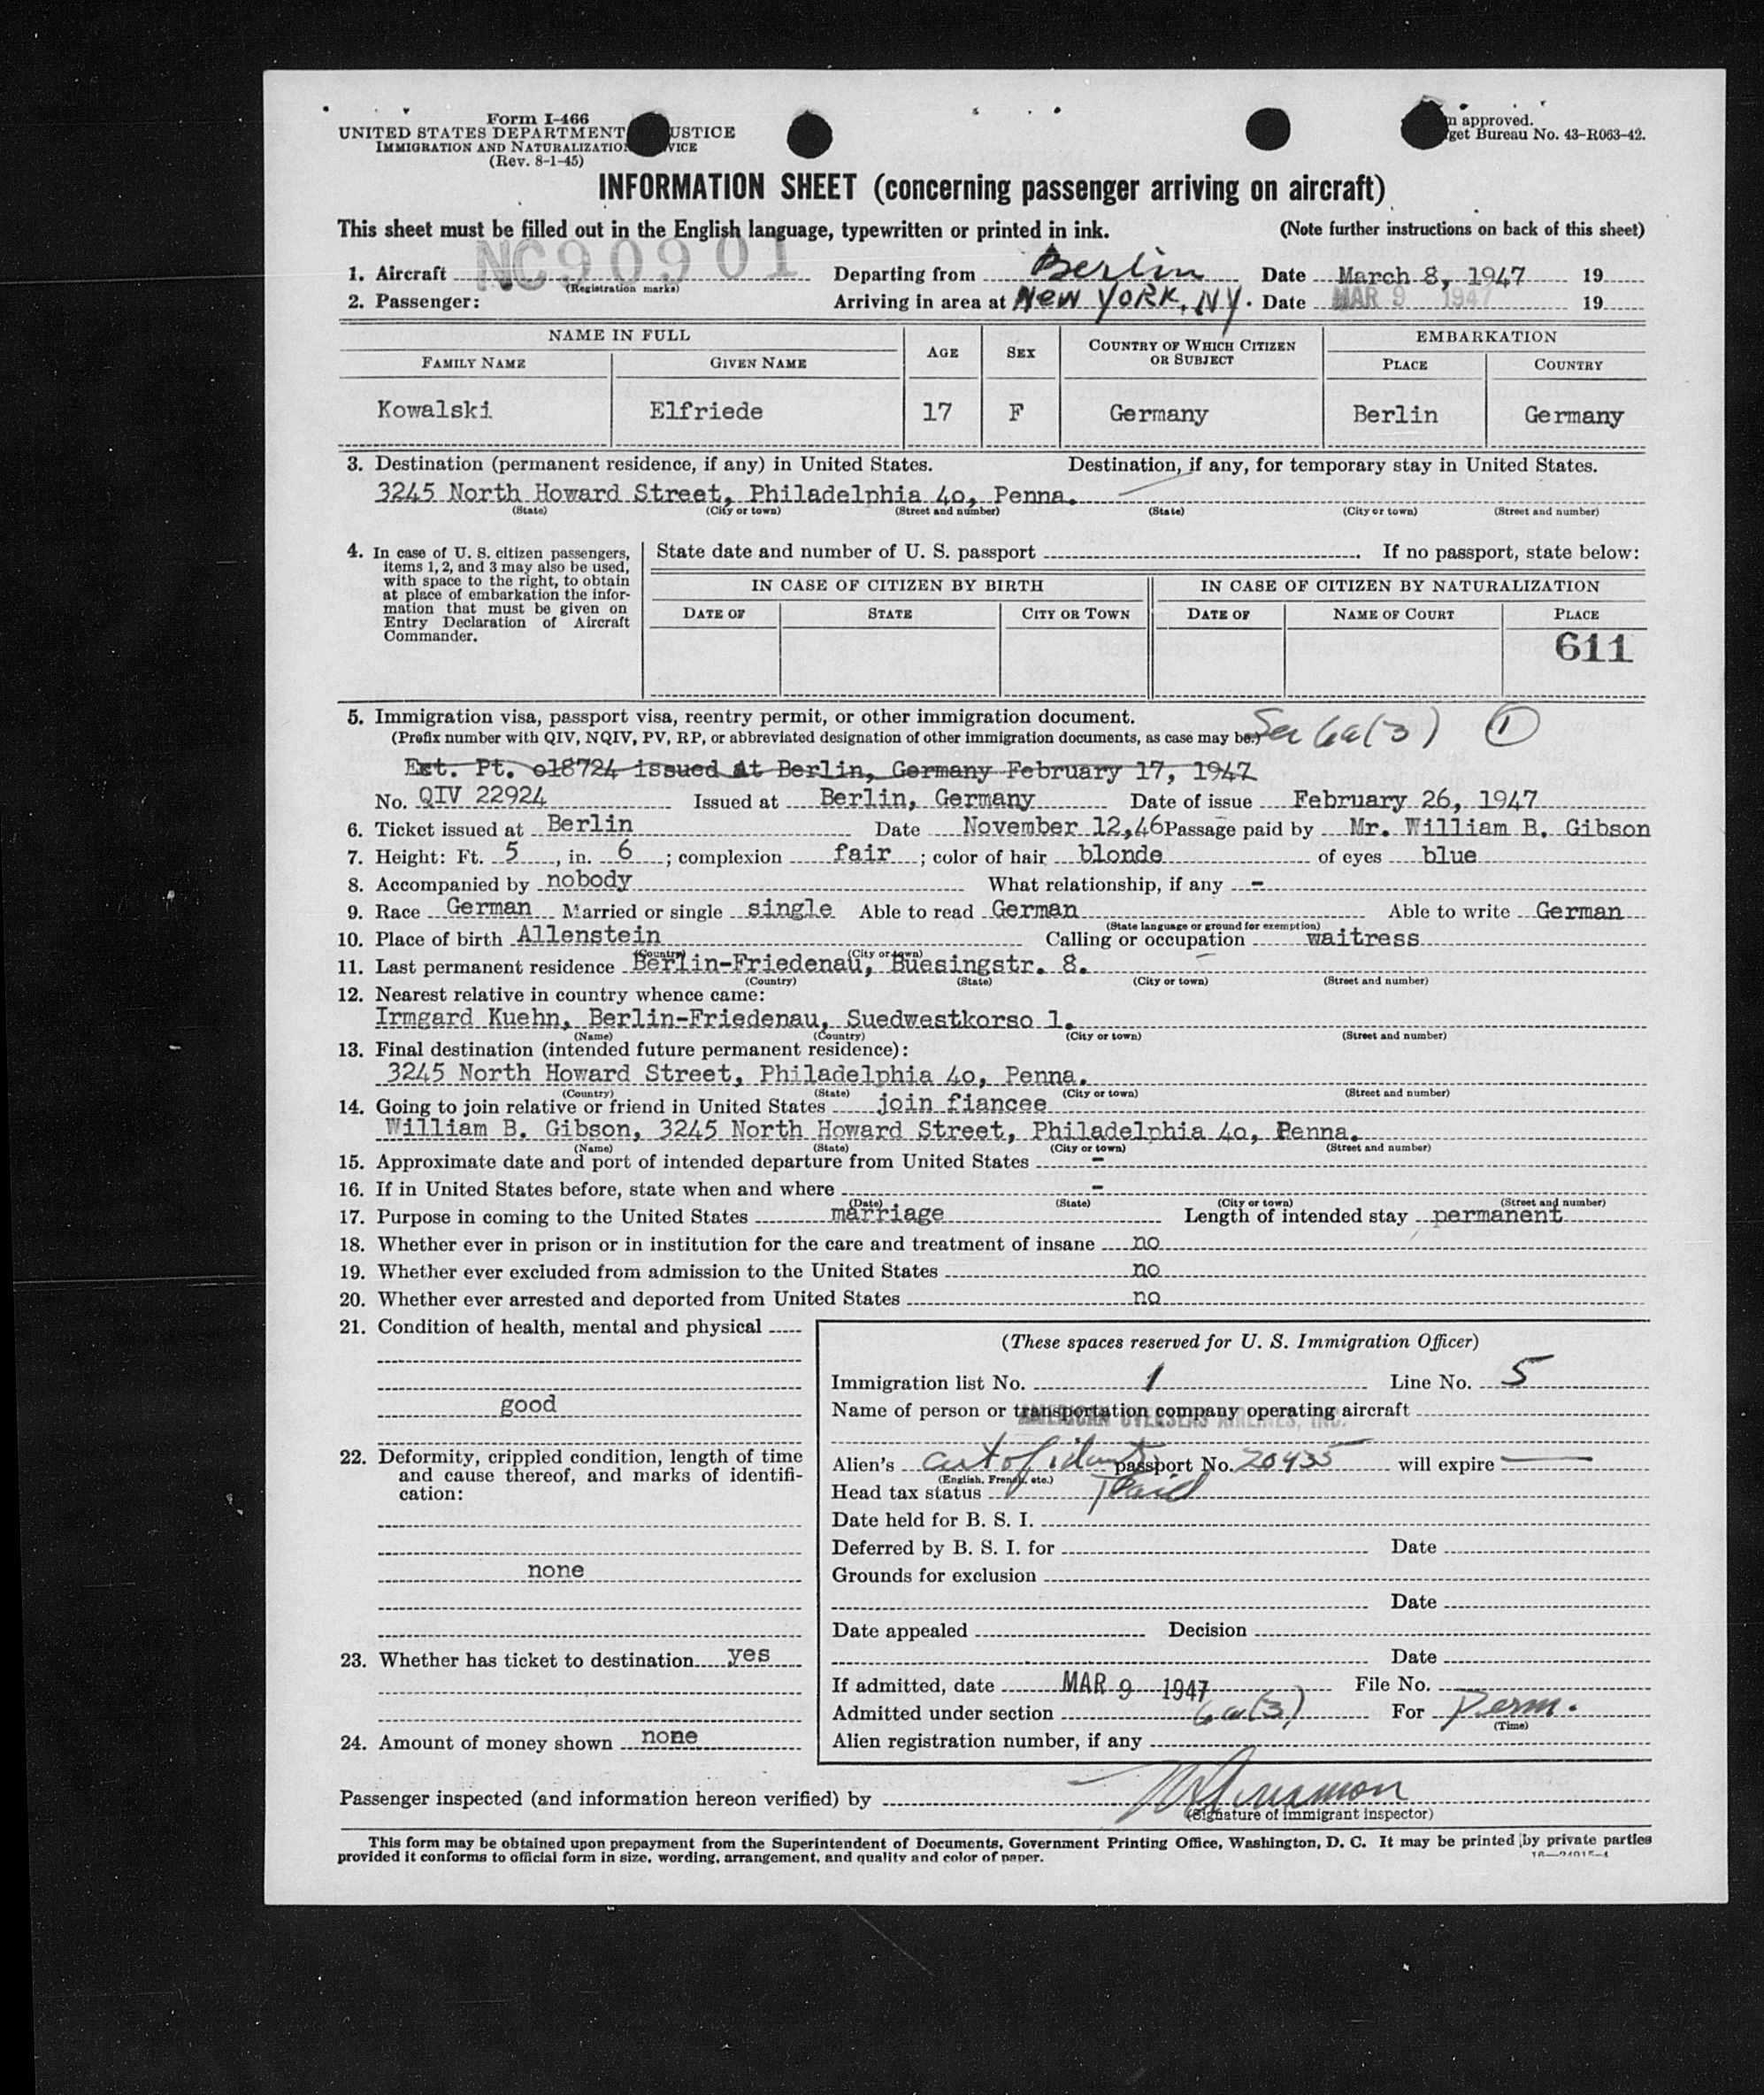 Form I-466
UNITED STATES DEPARTMENT USTICE
IMMIGRATION AND NATURALIZATION VICE
(Rev. 8-1-45)
n approved.
get Bureau No. 43-R063-42.
INFORMATION SHEET (concerning passenger arriving on aircraft)
This sheet must be filled out in the English language, typewritten or printed in ink. (Note further instructions on back of this sheet)
1. Aircraft NC90901 Departing from Berlin Date March 8, 1947 19
(Registration marks)
2. Passenger: Arriving in area at NEW YORK, NY. Date MAR 9 1947 19
NAME IN FULL AGE SEX COUNTRY OF WHICH CITIZEN OR SUBJECT EMBARKATION
FAMILY NAME GIVEN NAME PLACE COUNTRY
Kowalski Elfriede 17 F Germany Berlin Germany
3. Destination (permanent residence, if any) in United States. Destination, if any, for temporary stay in United States.
3245 North Howard Street, Philadelphia 4o, Penna.
(State) (City or town) (Street and number) (State) (City or town) (Street and number)
4. In case of U. S. citizen passengers, items 1, 2, and 3 may also be used, with space to the right, to obtain at place of embarkation the information that must be given on Entry Declaration of Aircraft Commander.
State date and number of U. S. passport . If no passport, state below:
IN CASE OF CITIZEN BY BIRTH IN CASE OF CITIZEN BY NATURALIZATION
DATE OF STATE CITY OR TOWN DATE OF NAME OF COURT PLACE
611
5. Immigration visa, passport visa, reentry permit, or other immigration document.
(Prefix number with QIV, NQIV, PV, RP, or abbreviated designation of other immigration documents, as case may be.) Sec 6a(3) 1
Ext. Pt. o18724 issued At Berlin, Germany February 17, 1947
No. QIV 22924 Issued at Berlin, Germany Date of issue February 26, 1947
6. Ticket issued at Berlin Date November 12,46 Passage paid by Mr. William B. Gibson
7. Height: Ft. 5, in. 6; complexion fair; color of hair blonde of eyes blue
8. Accompanied by nobody What relationship, if any -
9. Race German Married or single single Able to read German Able to write German
(State language or ground for exemption)
10. Place of birth Allenstein Calling or occupation waitress
(Country) (City or town)
11. Last permanent residence Berlin-Friedenau, Buesingstr. 8.
(Country) (State) (City or town) (Street and number)
12. Nearest relative in country whence came:
Irmgard Kuehn, Berlin-Friedenau, Suedwestkorso 1.
(Name) (Country) (City or town) (Street and number)
13. Final destination (intended future permanent residence):
3245 North Howard Street, Philadelphia 4o, Penna.
(Country) (State) (City or town) (Street and number)
14. Going to join relative or friend in United States join fiancee
William B. Gibson, 3245 North Howard Street, Philadelphia 4o, Penna.
(Name) (State) (City or town) (Street and number)
15. Approximate date and port of intended departure from United States -
16. If in United States before, state when and where -
(Date) (State) (City or town) (Street and number)
17. Purpose in coming to the United States marriage Length of intended stay permanent
18. Whether ever in prison or in institution for the care and treatment of insane no
19. Whether ever excluded from admission to the United States no
20. Whether ever arrested and deported from United States no
21. Condition of health, mental and physical
good
22. Deformity, crippled condition, length of time and cause thereof, and marks of identification:
none
23. Whether has ticket to destination yes
24. Amount of money shown none
(These spaces reserved for U. S. Immigration Officer)
Immigration list No. 1 Line No. 5
Name of person or transportation company operating aircraft
AMERICAN OVERSEAS AIRLINES, INC.
Alien's cert of ident passport No. 20435 will expire
(English, French, etc.)
Head tax status Paid
Date held for B. S. I.
Deferred by B. S. I. for Date
Grounds for exclusion
Date
Date appealed Decision
Date
If admitted, date MAR 9 1947 File No.
Admitted under section 6a(3) For Perm.
(Time)
Alien registration number, if any
Passenger inspected (and information hereon verified) by
(Signature of immigrant inspector)
This form may be obtained upon prepayment from the Superintendent of Documents, Government Printing Office, Washington, D. C. It may be printed by private parties
provided it conforms to official form in size, wording, arrangement, and quality and color of paper.